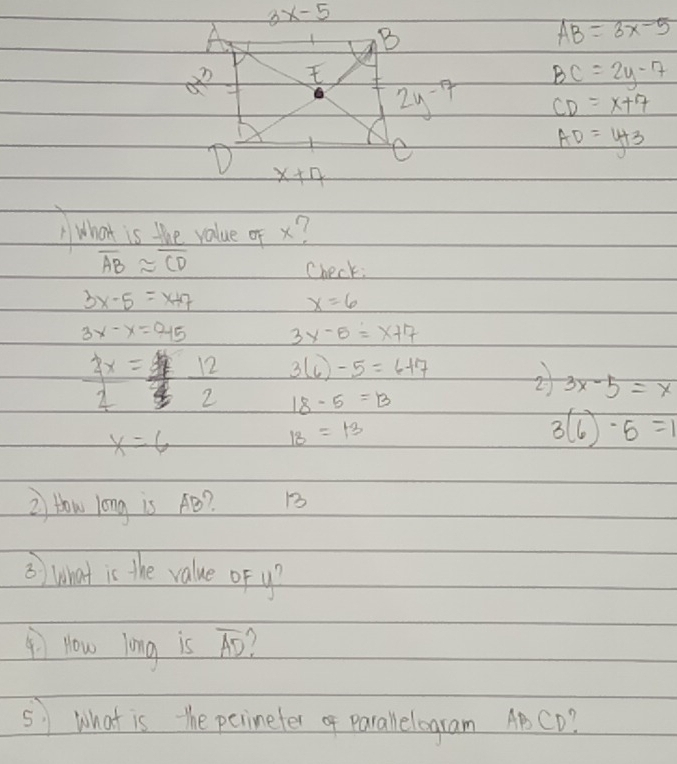 3x-5
A B
E
y+3
2y-7
D C
x+7
AB = 3x-5
BC = 2y-7
CD = x+7
AD = y+3
1) What is the value of x?
AB ≈ CD
3x-5 = x+7
3x-x=7+5
2x = 12
2 2
x = 6
Check:
x = 6
3x-5 = x+7
3(6)-5 = 6+7
18-5 = 13
13 = 13
2) 3x-5 = x
3(6)-5 = 1
2) How long is AB? 13
3) What is the value of y?
4.) How long is AD?
5.) What is the perimeter of parallelogram ABCD?